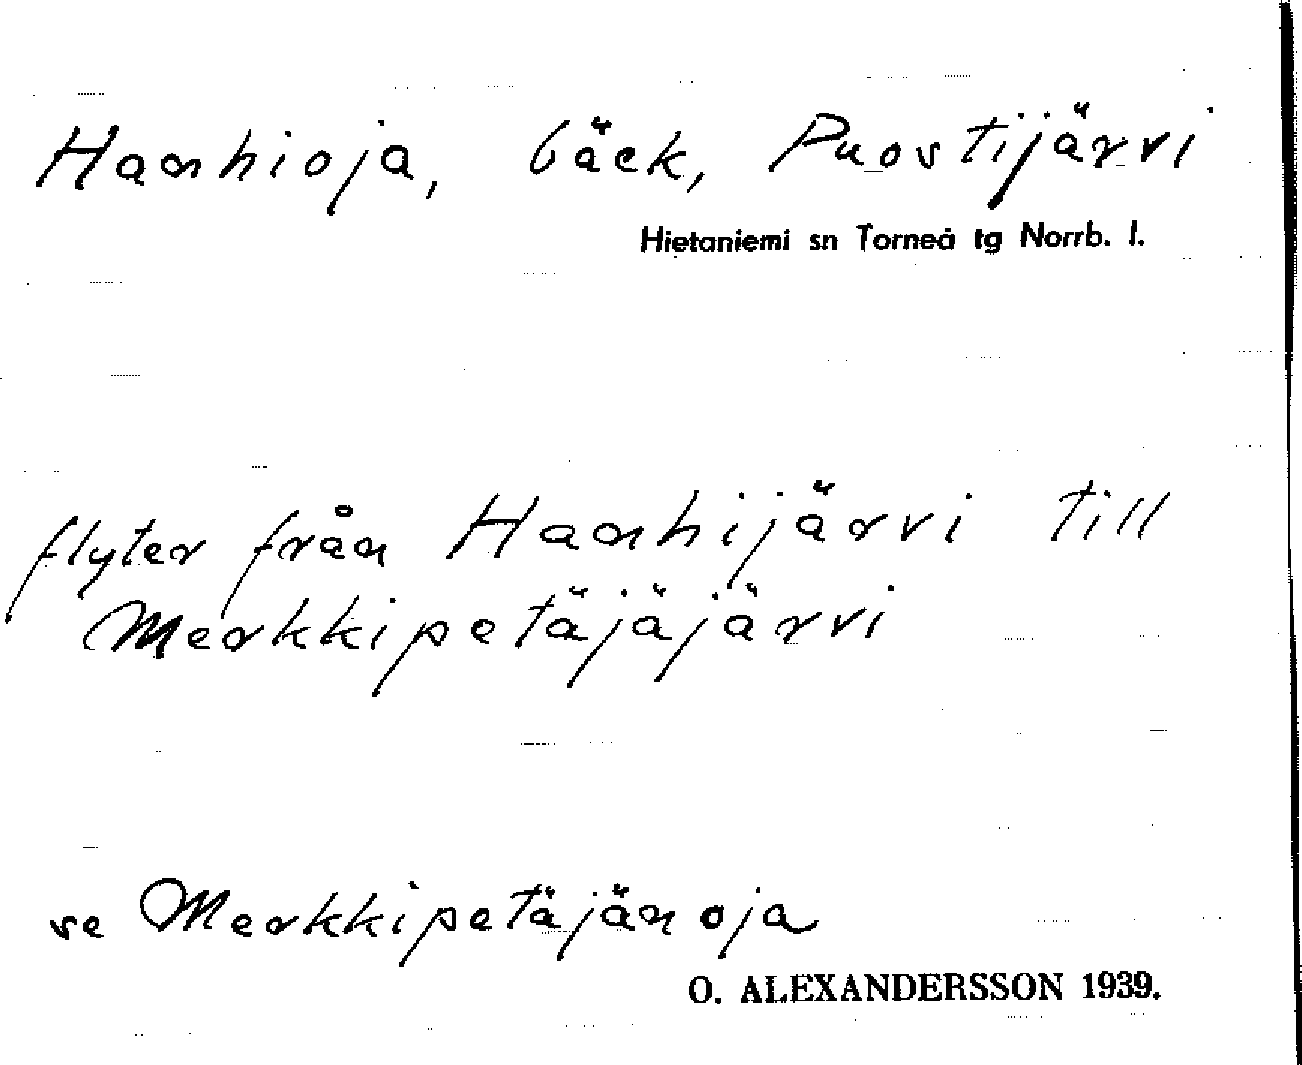 Hanhioja, bäck, Puostijärvi
Hietaniemi sn Torneå tg Norrb. l.
flyter från Hanhijärvi till
Merkkipetäjäjärvi
se Merkkipetäjänoja
O. ALEXANDERSSON 1939.